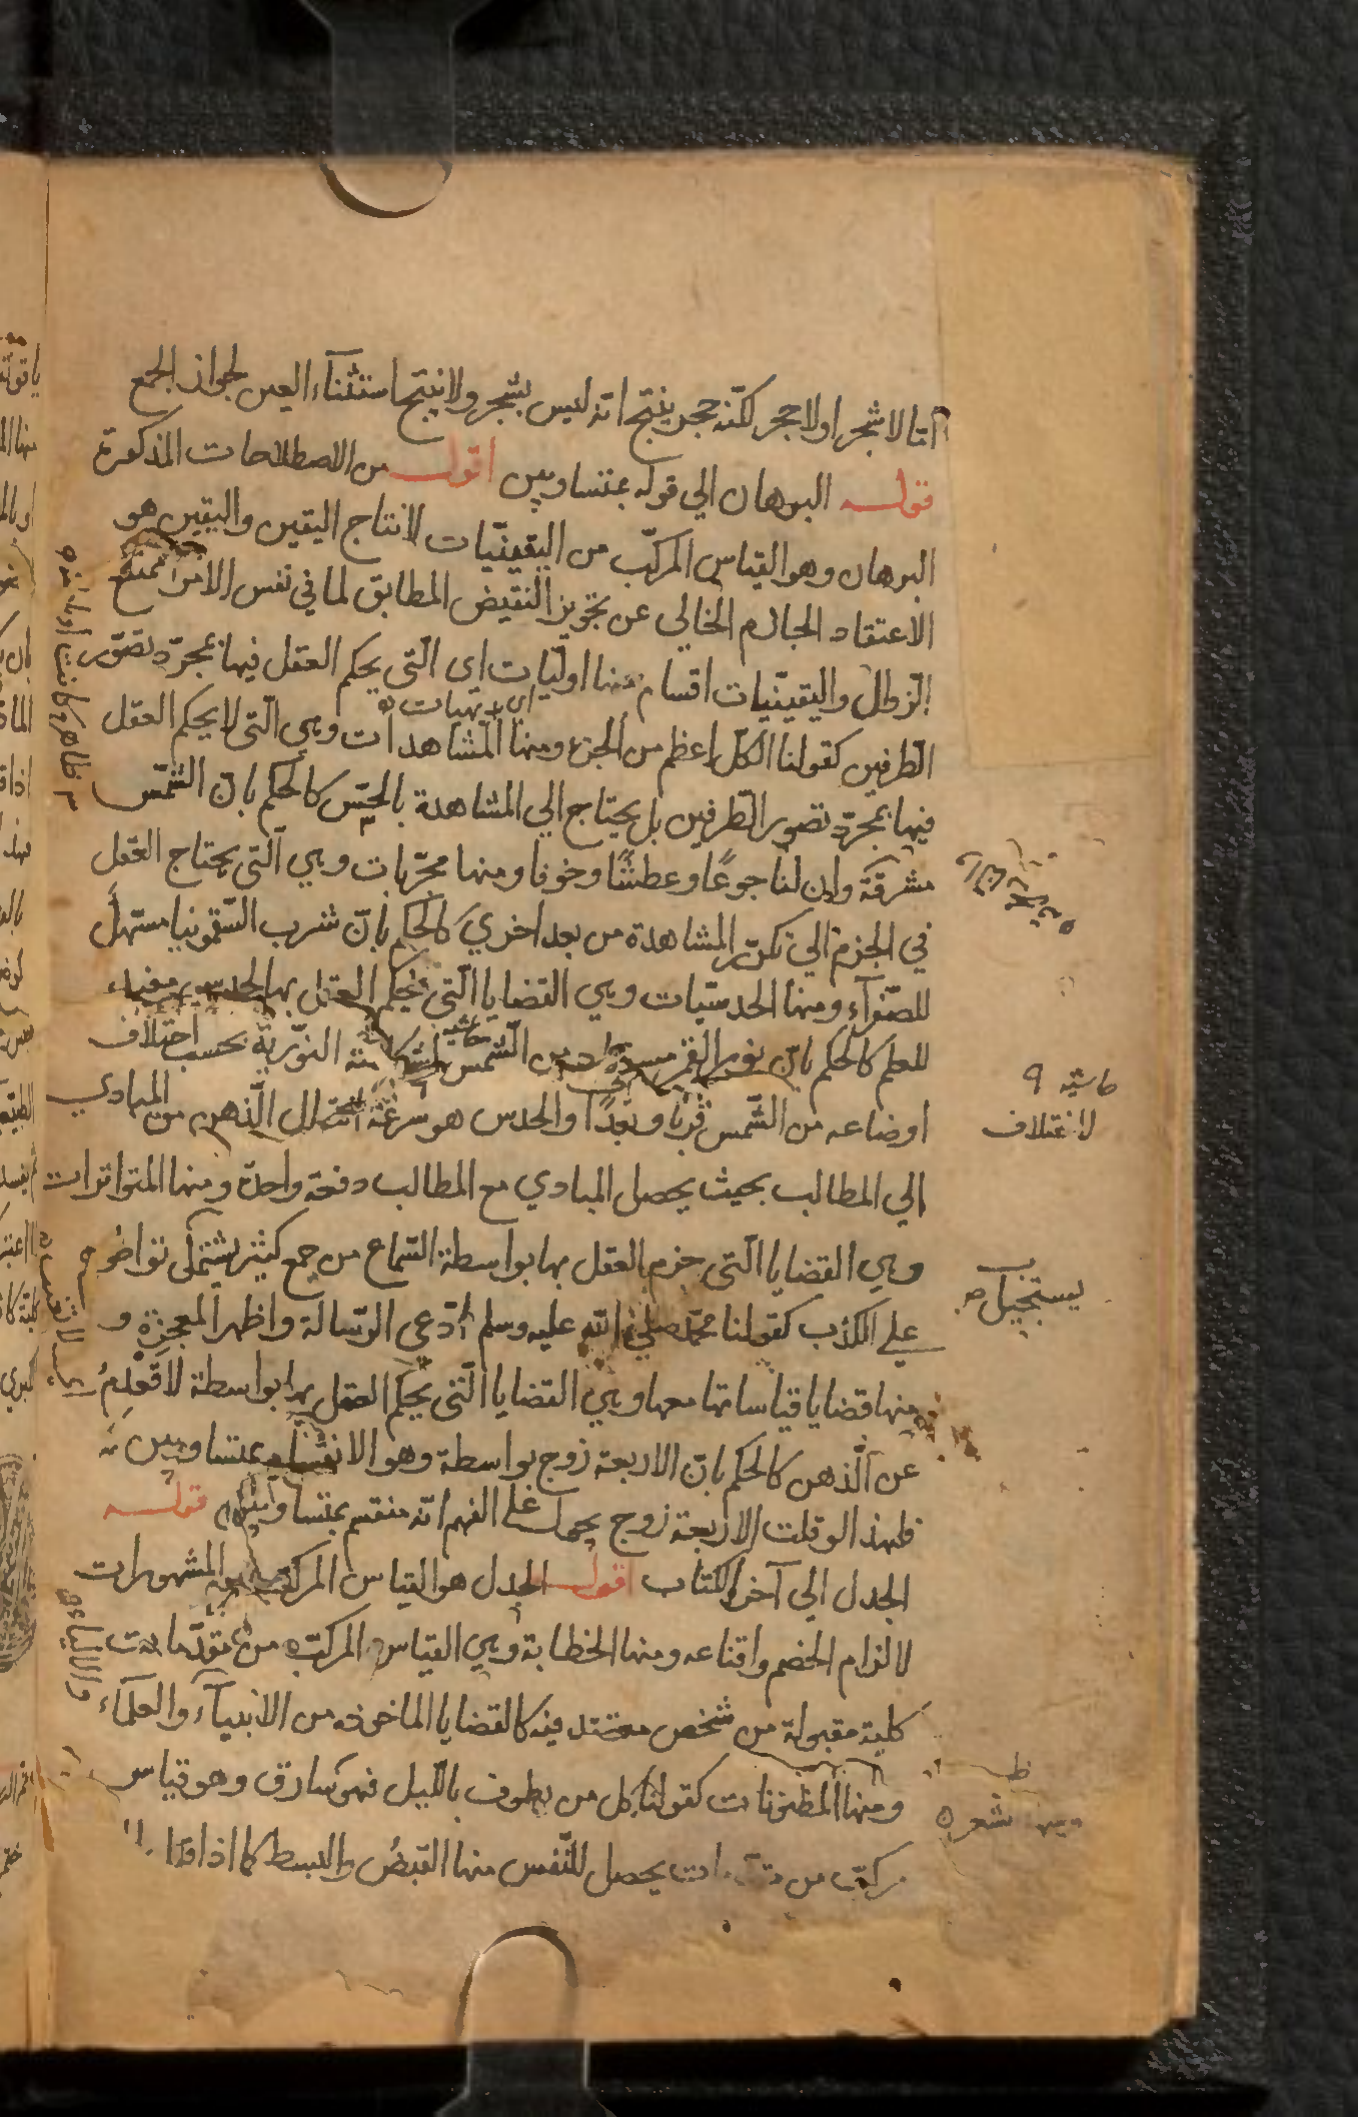 امّا لا شجر او لا حجر لكنّه حجر ينتج انّه ليس بشجر ولا ينتج استثنآء العين لجواز الجمع
قوله البرهان الي قوله بمتساويين اقول من الاصطلاحات المذكورة
البرهان وهو القياس المركّب من اليقينيّات لانتاج اليقين واليقين هو
الاعتقاد الجازم الخالي عن تجويز النقيض المطابق لما في نفس الامر الممتنع
الزوال واليقينيّات اقسام منها اوليّات اى الّتى يحكم العقل فيها بمجرّد تصوّر
اى بديهيات
الطّرفين كقولنا الكلّ اعظم من الجزء ومنها المشاهدات وهي الّتى لا يحكم العقل
فيها بمجرّد تصوّر الطّرفين بل يحتاج الي المشاهدة بالحِسّ كالحكم بانّ الشّمس
مشرقة وان لنا جوعًا وعطشًا وخوفا ومنها مجرّبات وهي الّتى يحتاج العقل
في الجزم الي تكرّر المشاهدة من بعد اخري كالحكم بانّ شرب السّقمونيا مسهل
للصّفرآء ومنها الحدسيّات وهي القضايا الّتى يحكم العقل بها بالحدس مفيد
للعلم كالحكم بانّ نور القمر من الشّمس النوّريّة بحسب اختلاف
اوضاعه من الشّمس قربًا وبعدًا والحدس هو سرعة انتقال الذّهن من المبادي
حاشيه
لاختلاف
الي المطالب بحيث يحصل المبادي مع المطالب دفعة واحدة ومنها المتواترات
وهي القضايا الّتى جزم العقل بها بواسطة السّماع من جمع كثير تواطؤ
يستحيل
علي الكذب كقولنا محمّد صلّى الله عليه وسلم ادّعي الرّسالة واظهر المعجزة و
منها قضايا قياساتها معها وهي القضايا الّتى يحكم العقل بها بواسطة لا
عن الّذهن كالحكم بانّ الاربعة زوج بواسطة وهو الانقسام بمتساويين
فلهذا لو قلت الاربعة زوج يحمل علي الفهم انّه منقسم بمتساويين قوله
الجدل الي آخر الكتاب اقول الجدل هو القياس المركّب من المشهورات
لالزام الخصم واقناعه ومنها الخطابة وهي القياس المركّب من مقدّمات
كلية مقبولة من شخص معتقد فيه كالقضايا الماخوذه من الانبيآء والعلمآء
ومنها المظنونات كقولنا كل من يطوف بالّليل فهو سارق وهو قياس
ومنها شعر
مركّب من يحصل للنّفس منها القبض والبسط كما اذا